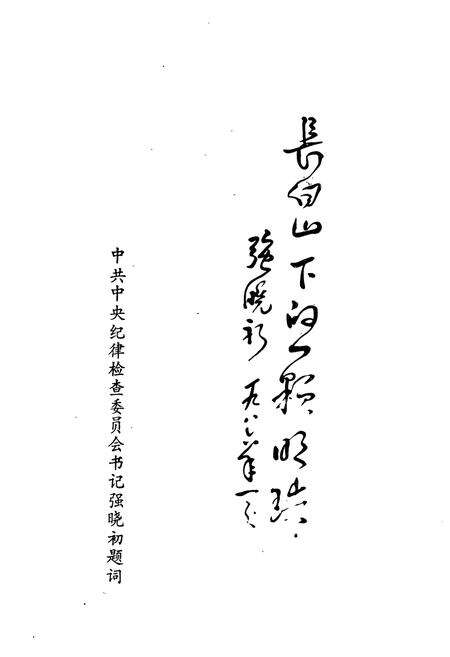 長白山下的一颗明珠
强晓初 一九八六年一月
中共中央纪律检查委员会书记强晓初题词